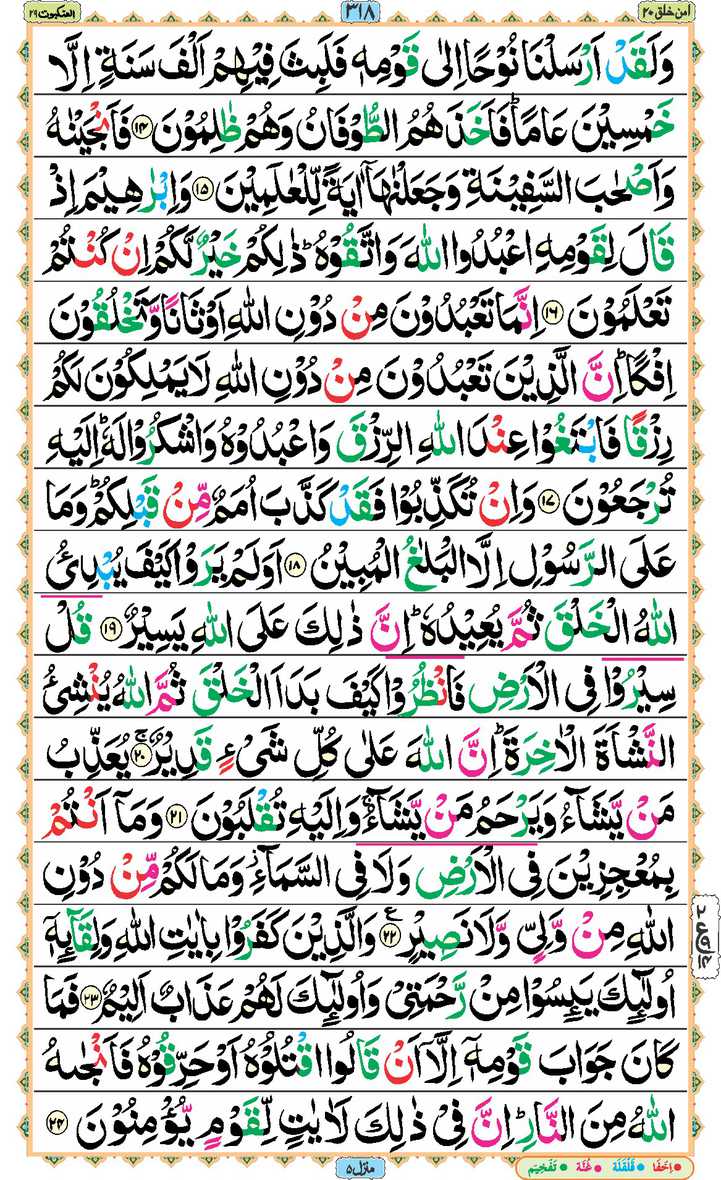 امن خلق ۲۰
۳۱۸
العنکبوت ۲۹
وَلَقَدْ اَرْسَلْنَا نُوْحًا اِلٰى قَوْمِهٖ فَلَبِثَ فِيْهِمْ اَلْفَ سَنَةٍ اِلَّا
خَمْسِيْنَ عَامًا ؕ فَاَخَذَهُمُ الطُّوْفَانُ وَهُمْ ظٰلِمُوْنَ ﴿۱۴﴾ فَاَنْجَيْنٰهُ
وَاَصْحٰبَ السَّفِيْنَةِ وَجَعَلْنٰهَاۤ اٰيَةً لِّلْعٰلَمِيْنَ ﴿۱۵﴾ وَاِبْرٰهِيْمَ اِذْ
قَالَ لِقَوْمِهِ اعْبُدُوا اللّٰهَ وَاتَّقُوْهُ ؕ ذٰلِكُمْ خَيْرٌ لَّكُمْ اِنْ كُنْتُمْ
تَعْلَمُوْنَ ﴿۱۶﴾ اِنَّمَا تَعْبُدُوْنَ مِنْ دُوْنِ اللّٰهِ اَوْثَانًا وَّتَخْلُقُوْنَ
اِفْكًا ؕ اِنَّ الَّذِيْنَ تَعْبُدُوْنَ مِنْ دُوْنِ اللّٰهِ لَا يَمْلِكُوْنَ لَكُمْ
رِزْقًا فَابْتَغُوْا عِنْدَ اللّٰهِ الرِّزْقَ وَاعْبُدُوْهُ وَاشْكُرُوْا لَهٗ ؕ اِلَيْهِ
تُرْجَعُوْنَ ﴿۱۷﴾ وَاِنْ تُكَذِّبُوْا فَقَدْ كَذَّبَ اُمَمٌ مِّنْ قَبْلِكُمْ ؕ وَمَا
عَلَى الرَّسُوْلِ اِلَّا الْبَلٰغُ الْمُبِيْنُ ﴿۱۸﴾ اَوَلَمْ يَرَوْا كَيْفَ يُبْدِئُ
اللّٰهُ الْخَلْقَ ثُمَّ يُعِيْدُهٗ ؕ اِنَّ ذٰلِكَ عَلَى اللّٰهِ يَسِيْرٌ ﴿۱۹﴾ قُلْ
سِيْرُوْا فِى الْاَرْضِ فَانْظُرُوْا كَيْفَ بَدَاَ الْخَلْقَ ثُمَّ اللّٰهُ يُنْشِئُ
النَّشْاَةَ الْاٰخِرَةَ ؕ اِنَّ اللّٰهَ عَلٰى كُلِّ شَىْءٍ قَدِيْرٌ ۚ﴿۲۰﴾ يُعَذِّبُ
مَنْ يَّشَآءُ وَيَرْحَمُ مَنْ يَّشَآءُ ۚ وَاِلَيْهِ تُقْلَبُوْنَ ﴿۲۱﴾ وَمَاۤ اَنْتُمْ
بِمُعْجِزِيْنَ فِى الْاَرْضِ وَلَا فِى السَّمَآءِ ؗ وَمَا لَكُمْ مِّنْ دُوْنِ
اللّٰهِ مِنْ وَّلِىٍّ وَّلَا نَصِيْرٍ ﴿۲۲﴾ع وَالَّذِيْنَ كَفَرُوْا بِاٰيٰتِ اللّٰهِ وَلِقَآئِهٖۤ
اُولٰٓئِكَ يَئِسُوْا مِنْ رَّحْمَتِىْ وَاُولٰٓئِكَ لَهُمْ عَذَابٌ اَلِيْمٌ ﴿۲۳﴾ فَمَا
كَانَ جَوَابَ قَوْمِهٖۤ اِلَّاۤ اَنْ قَالُوا اقْتُلُوْهُ اَوْ حَرِّقُوْهُ فَاَنْجٰىهُ
اللّٰهُ مِنَ النَّارِ ؕ اِنَّ فِىْ ذٰلِكَ لَاٰيٰتٍ لِّقَوْمٍ يُّؤْمِنُوْنَ ﴿۲۴﴾
منزل ۵
اِخْفَا قَلْقَلَه غُنَّه تَفْخِيْم